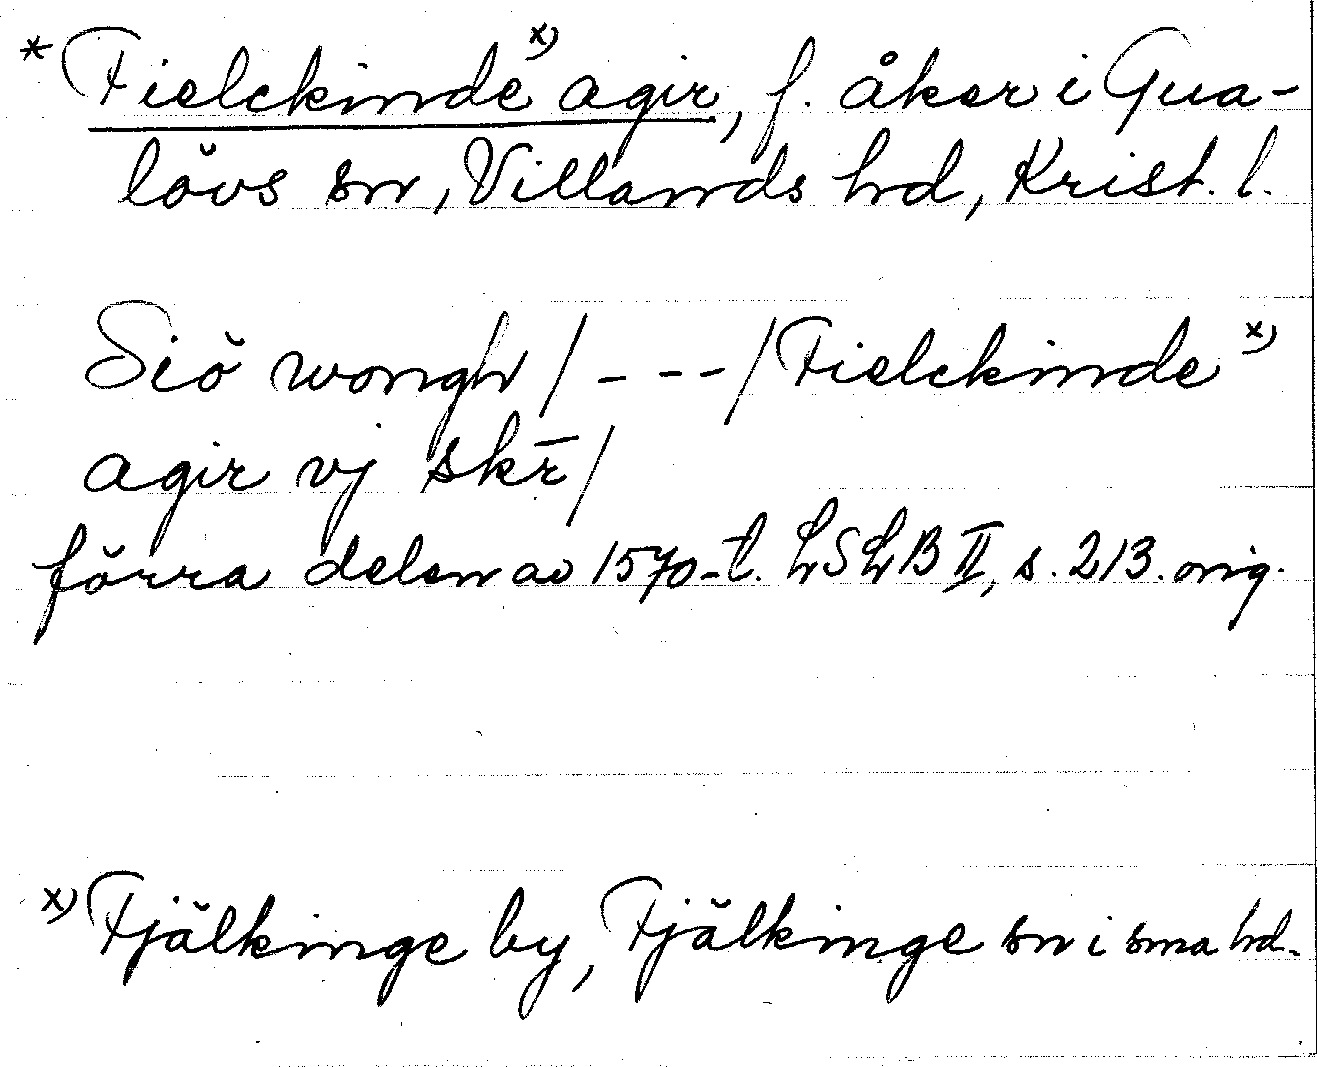 * Fielckinde x) agir, f. åker i Gua-
lövs sn, Villands hd, Krist. l.
Siö wongh / - - - / Fielckinde x)
agir vj skr̄ /
förra delen av 1570-t. LSLB II, s. 213. orig.
x) Fjälkinge by, Fjälkinge sn i sma hd.